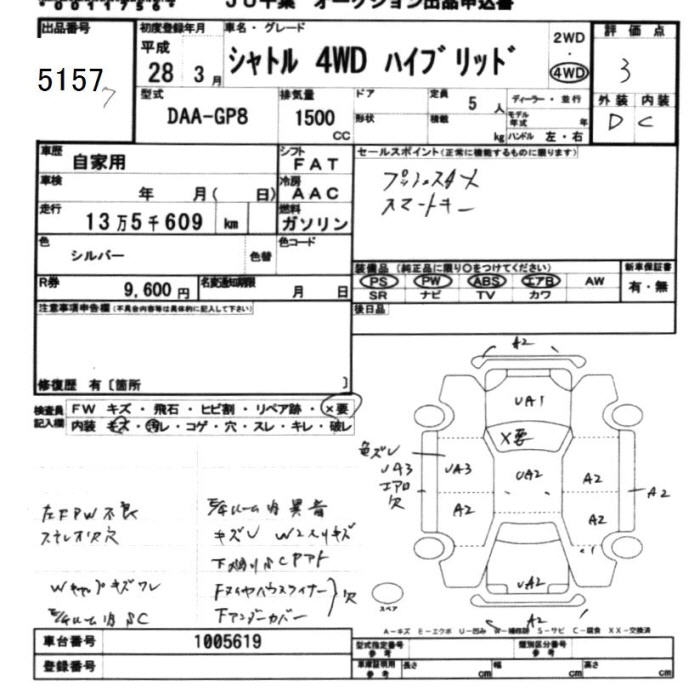 JU千葉 オークション出品申込書
出品番号
5157
7
初度登録年月
平成 28 3月
車名・グレード
シャトル 4WD ハイブリッド
2WD
・
4WD
評価点
3
外装 内装
D C
型式
DAA-GP8
排気量
1500 CC
ドア
形状
定員 5 人
積載 kg
ディーラー・並行
モデル年式 年
ハンドル 左・右
車歴 自家用
シフト FAT
車検 年 月( 日)
冷房 AAC
走行 13万5千609 km
燃料 ガソリン
色 シルバー 色替
色コード
R券 9,600円
名変通知期限 月 日
セールスポイント(正常に機能するものに限ります)
プッシュスタート
スマートキー
装備品(純正品に限り○をつけてください)
PS PW ABS エアB AW
SR ナビ TV カワ
新車保証書
有・無
後日品
注意事項申告欄(不具合内容等は具体的に記入して下さい)
修復歴 有〔箇所 〕
検査員記入欄
FW キズ・飛石・ヒビ割・リペア跡・×要
内装 キズ・汚レ・コゲ・穴・スレ・キレ・破レ
左FPW不良
ステレオ欠
異音
キズ
Wスリキズ
下廻り
Fタイヤハウスライナー
Fアンダーカバー
欠
A2
UA1
×要
UA3
UA2
A2
A2
A2
A2
UA3
エアロ
欠
UA2
A2
スペア
A-キズ E-エクボ U-凹み W-補修跡 S-サビ C-腐食 XX-交換済
車台番号 1005619
登録番号
型式指定番号 参考
類別区分番号 参考
車庫証明用 参考
長さ cm
幅 cm
高さ cm